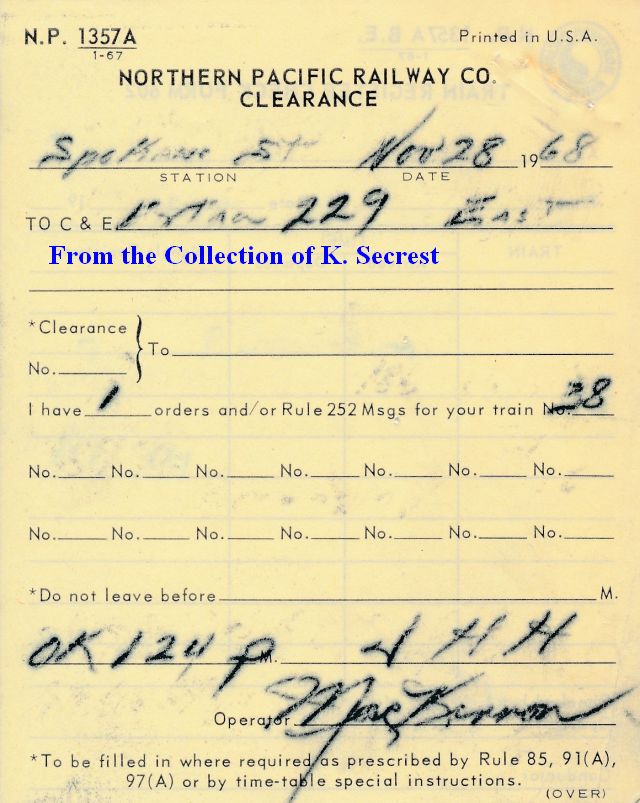 N.P. 1357A Printed in U.S.A.
1-67
NORTHERN PACIFIC RAILWAY CO.
CLEARANCE
Spokane St Nov 28 1968
STATION DATE
TO C & E Extra 229 East
From the Collection of K. Secrest
*Clearance
No. To
I have 1 orders and/or Rule 252 Msgs for your train No. 38
No. No. No. No. No. No. No.
No. No. No. No. No. No. No.
*Do not leave before M.
OK 124 P M. J H H
Operator MacKinnon
*To be filled in where required as prescribed by Rule 85, 91(A),
97(A) or by time-table special instructions.
(OVER)